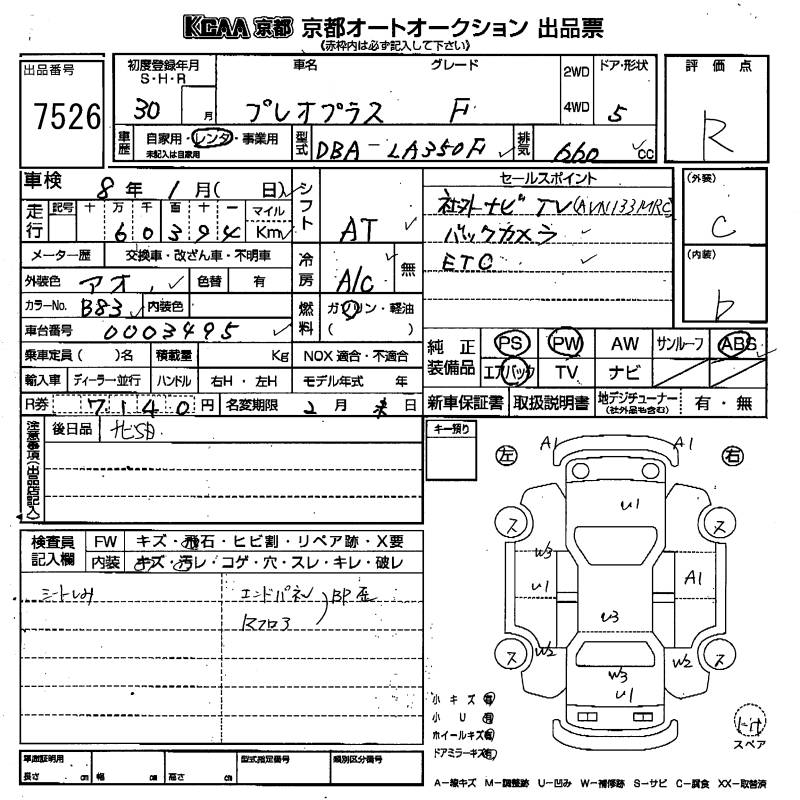 KCAA京都 京都オートオークション 出品票
(赤枠内は必ず記入して下さい)
出品番号
7526
初度登録年月
S・H・R
30 月
車名 グレード
プレオプラス F
2WD
4WD
ドア・形状
5
評価点
R
車歴
自家用・レンタ・事業用
未記入は自家用
型式
DBA-LA350F
排気
660 cc
車検 8年 1月( 日)
走行
記号 十 万 千 百 十 一 マイル
6 0 3 9 4 Km
メーター歴 交換車・改ざん車・不明車
外装色 アオ 色替 有
カラーNo. B83 内装色
車台番号 0003495
乗車定員( )名 積載量 Kg NOX適合・不適合
輸入車 ディーラー・並行 ハンドル 右H・左H モデル年式 年
R券 7140円 名変期限 2月 末日
シフト
AT
冷房
A/C 無
燃料
ガソリン・軽油
( )
セールスポイント
社外ナビ TV(AVN133MRC
バックカメラ
ETC
(外装)
C
(内装)
D
純正装備品
PS PW AW サンルーフ ABS
エアバック TV ナビ
新車保証書 取扱説明書 地デジチューナー 有・無
(社外品も含む)
注意事項(出品店記入)
後日品
キー預り
左 右
A1 A1
U1
ス ス
W3
U1 A1
U3
ス W2 W2 ス
W3
U1
検査員記入欄
FW キズ・飛石・ヒビ割・リペア跡・X要
内装 キズ・汚レ・コゲ・穴・スレ・キレ・破レ
シートしみ
エンドパネル
Rフロア
BP歪
小キズ有
小U有
ホイールキズ有
ドアミラーキズ有
スペア
車庫証明用
長さ cm 幅 cm 高さ cm
型式指定番号
類別区分番号
A-線キズ M-調整跡 U-凹み W-補修跡 S-サビ C-腐食 XX-取替済